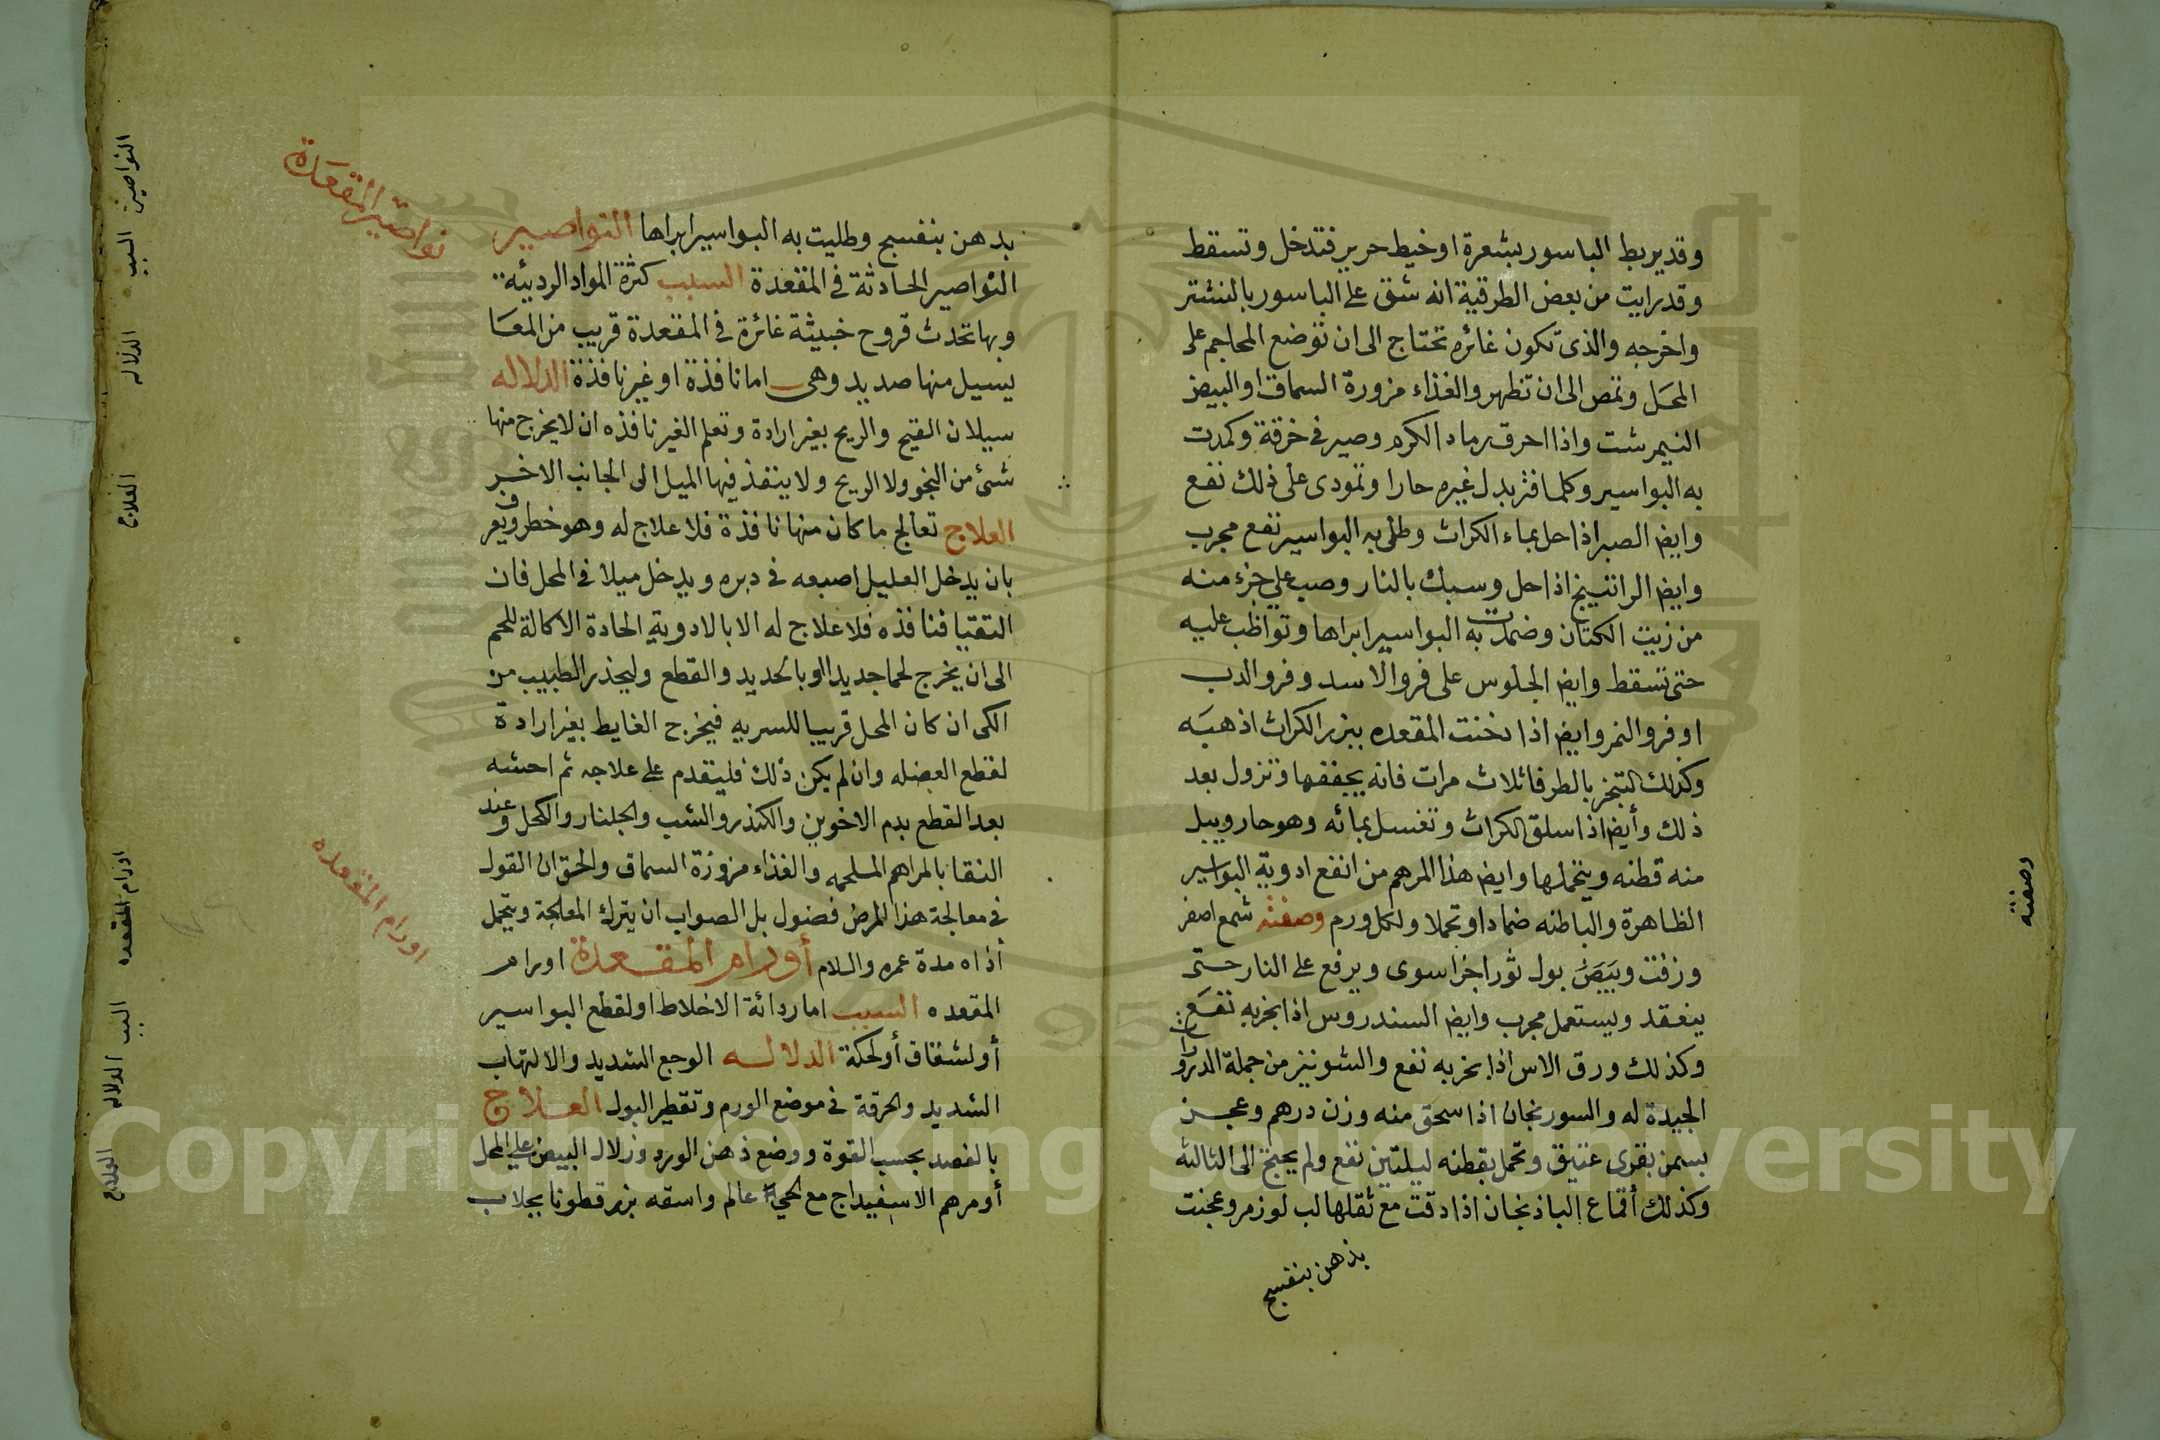 وقد يربط الباسور بشعرة او خيط حرير فتدخل وتسقط
وقد رايت من بعض الطرقية انه شق على الباسور بالنشتر
واخرجه والذى تكون غائره تحتاج الى ان توضع المحاجم على
المحل وتمص الى ان تظهر والغذاء مزورة السماق او البيض
النيمرشت واذا احرق رماد الكرم وصير فى خرقة وكمدت
به البواسير وكلما فتر بدل غيره حارا وتمودى على ذلك نفع
وايضا الصبر اذا حل بماء الكراث وطلى به البواسير نفع مجرب
وايضا الراتنينج اذا حل وسبك بالنار وصب على جزء منه
من زيت الكتان وضمدت به البواسير ابراها وتواظب عليه
حتى تسقط وايضا الجلوس على فرو الاسد وفرو الدب
او فرو النمر وايضا اذا دخنت المقعده ببزر الكراث اذهبه
وكذلك التبخر بالطرفا ثلاث مرات فانه يجففها وتزول بعد
ذلك وأيضا اذا سلق الكراث وتغسل بمائه وهو حار ويبل
منه قطنه ويتحملها وايضا هذا المرهم من انفع ادوية البواسير
الظاهرة والباطنه ضمادا وتحملا ولكل ورم وصفته شمع اصفر
وزفت وبيض بول ثور اجزا سوى ويرفع على النار حتى
ينعقد ويستعمل مجرب وايضا السندروس اذا بخر به نفع
وكذلك ورق الاس اذا بخر به نفع والشونيز من جملة الدرورات
الجيدة له والسورنجان اذا سحق منه وزن درهم وعجن
بسمن بقرى عتيق وتحمل بقطنه ليلتين نفع ولم يحتج الى الثالثه
وكذلك أقماع الباذنجان اذا دقت مع ثقلها لب لوز مر وعجنت
بذهن بنفسج
وصفته
بدهن بنفسج وطليت به البواسير ابراها النواصير
النواصير الحادثة فى المقعدة السبب كثرة المواد الرديئه
وبها تحدث قروح خبيثة غائرة فى المقعدة قريب من المعا
يسيل منها صديد وهى اما نافذة او غير نافذة الدلاله
سيلان القيح والريح بغير ارادة وتعلم الغير نافذه ان لا يخرج منها
شئ من النجو ولا الريح ولا ينفذ فيها الميل الى الجانب الاخر
العلاج تعالج ما كان منها نافذة فلا علاج له وهو خطر ويعرف
بان يدخل العليل اصبعه فى دبره ويدخل ميلا فى المحل فان
التقتيا فنافذه فلا علاج له الا بالادوية الحادة الاكالة للحم
الى ان يخرج لحما جديدا او بالحديد والقطع وليحذر الطبيب من
الكى ان كان المحل قريبا للسربه فيخرج الغايط بغير ارادة
لقطع العضله وان لم يكن ذلك فليتقدم على علاجه ثم احشه
بعد القطع بدم الاخوين والكندر والشب والجلنار والكحل وعند
النقا بالمراهم الملحمه والغذاء مزورة السماق والحق ان القول
فى معالجة هذا المرض فضول بل الصواب ان يترك المعالجة ويتحمل
أذاه مدة عمره والسلام أورام المقعدة اورام
المقعده السبب اما ردائة الاخلاط او لقطع البواسير
أو لشقاق أو لحكة الدلاله الوجع الشديد والالتهاب
الشديد والحرقة فى موضع الورم وتقطير البول العلاج
بالفصد بحسب القوة ووضع ذهن الورد وزلال البيض على المحل
أو مرهم الاسفيداج مع الحي عالم واسقه بزر قطونا بجلاب
نواصير المقعدة
اورام المقعده
النواصير
السبب
الدلاله
العلاج
اورام المقعده
السبب
الدلاله
العلاج
Copyright © King Saud University